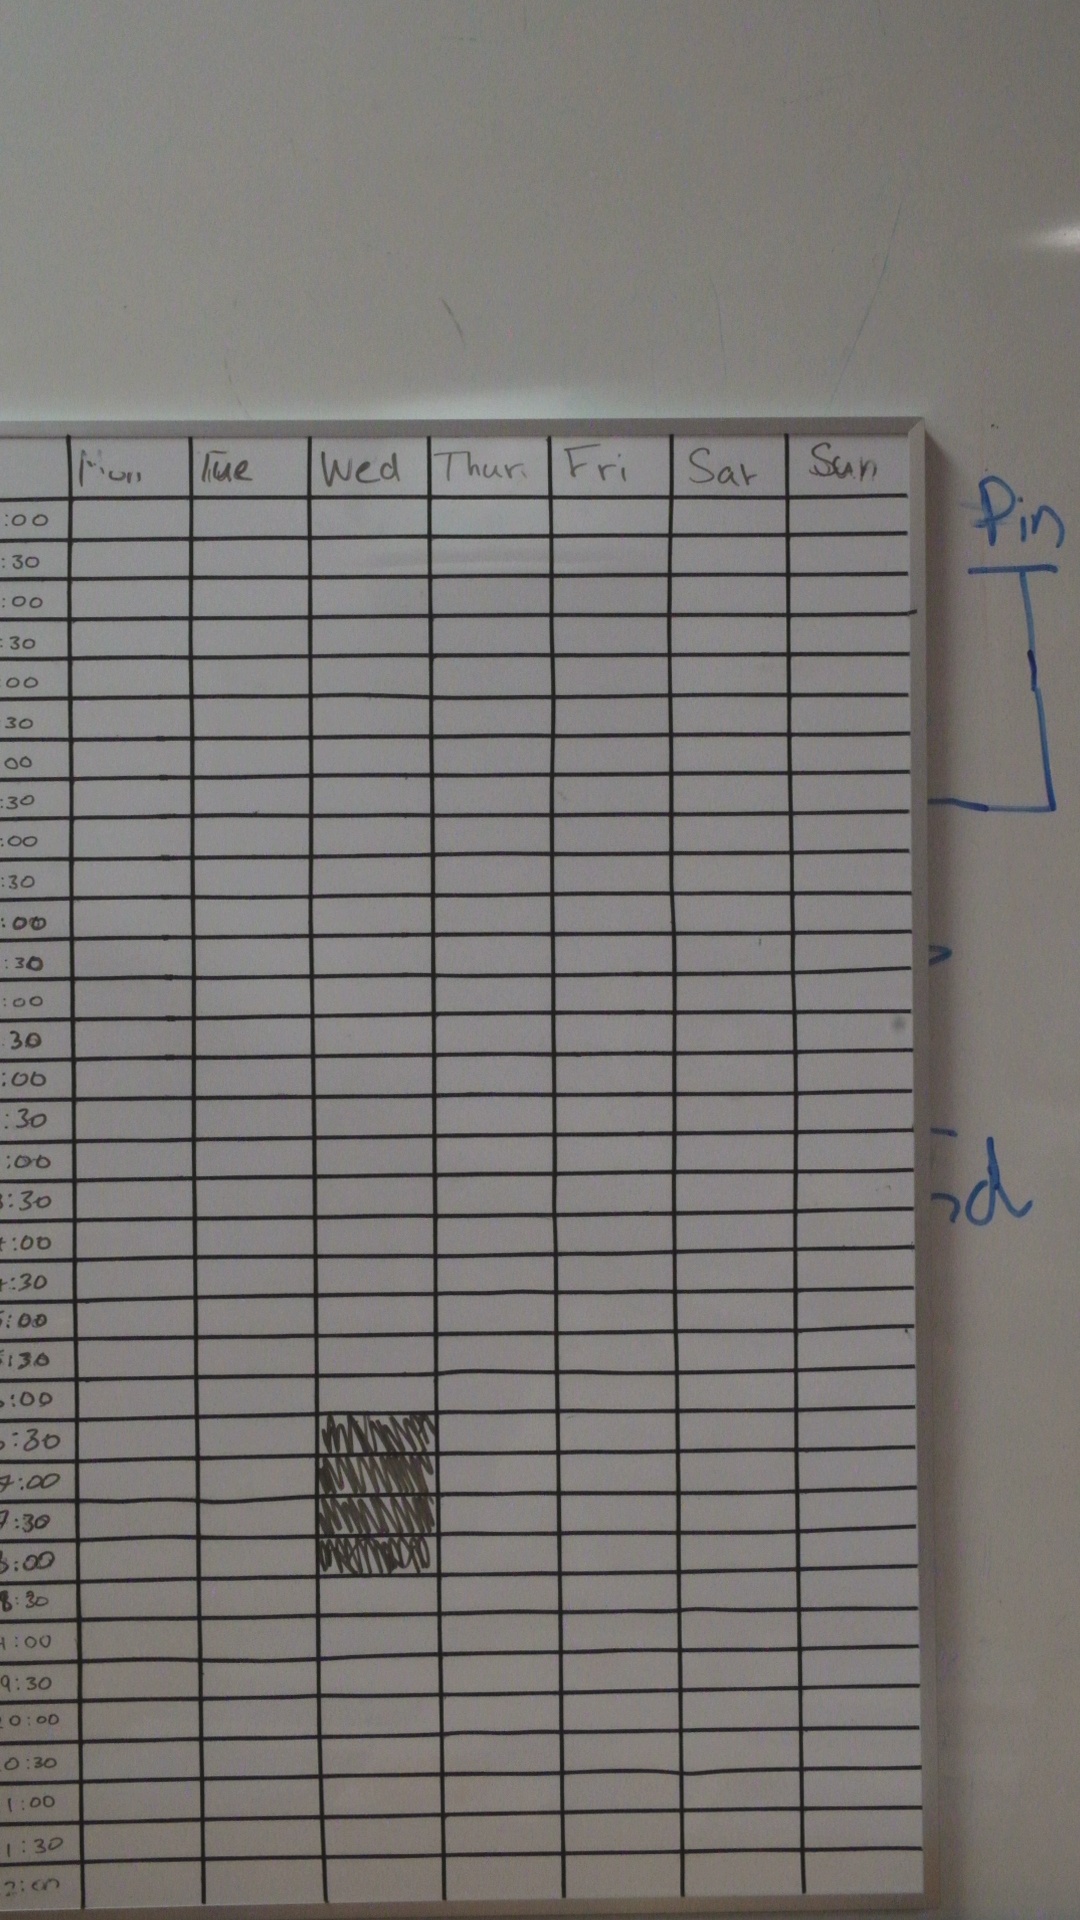 Mon Tue Wed Thur Fri Sat Sun
Pin
:00
:30
:00
:30
:00
:30
:00
:30
:00
:30
:00
:30
:00
:30
:00
:30
:00
:30
:00
:30
:00
:30
:00
:30
7:00
7:30
:00
8:30
:00
9:30
0:00
0:30
1:00
1:30
2:00
d